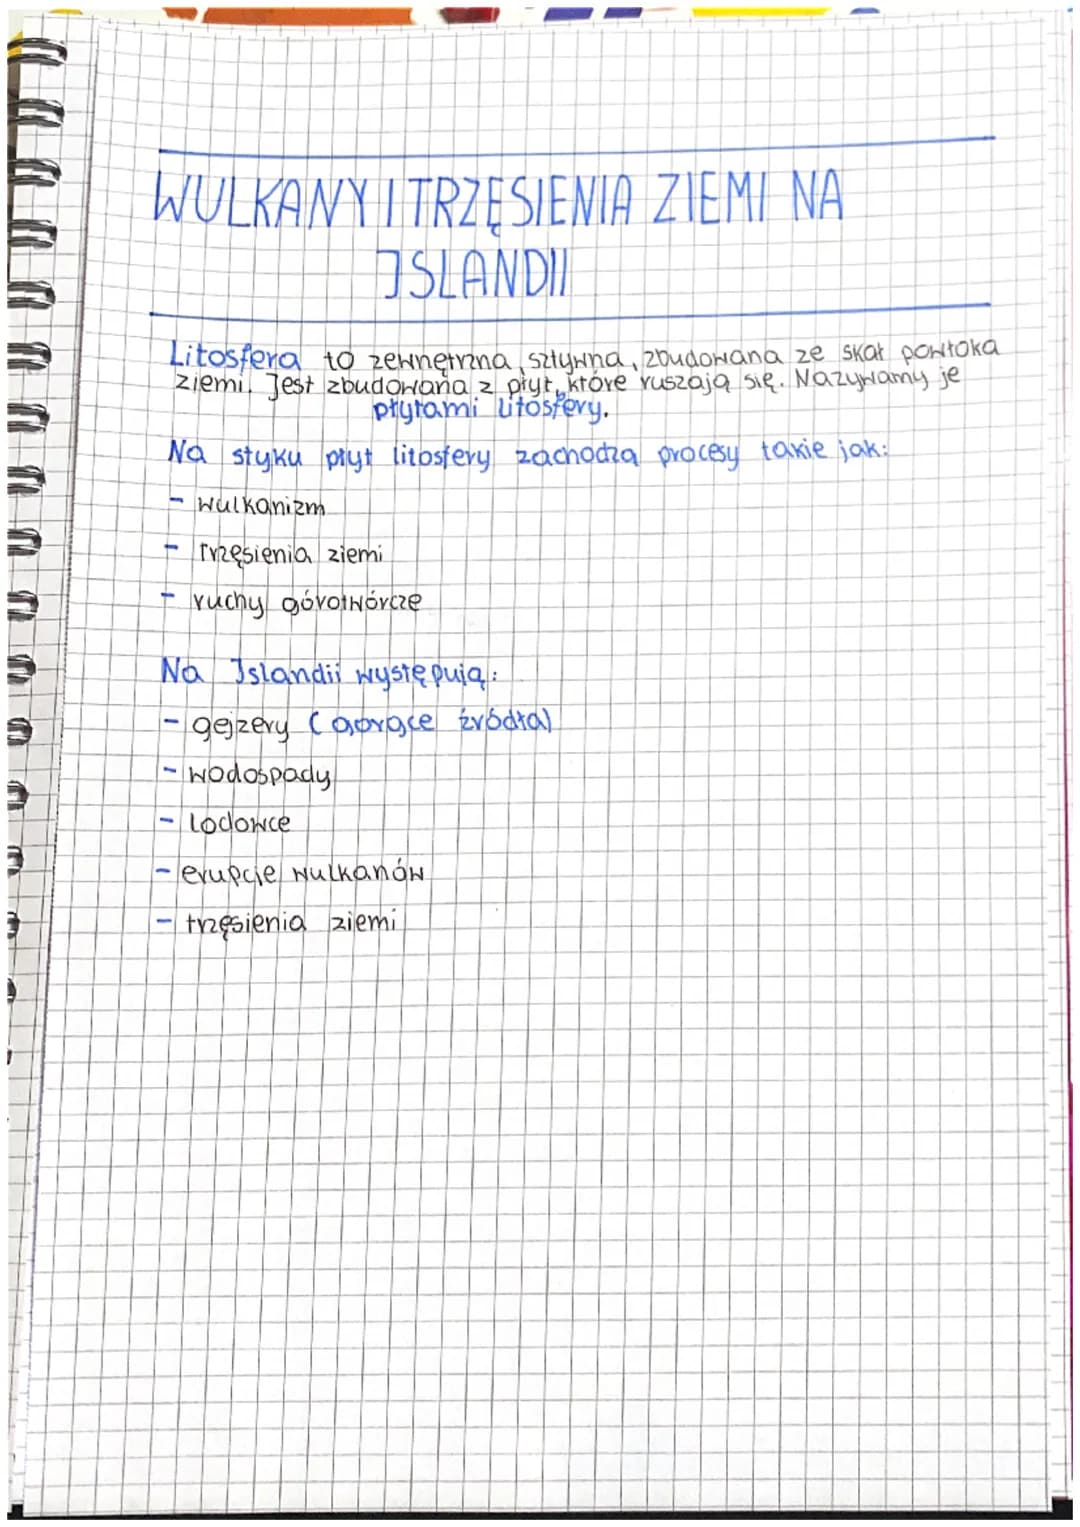 WULKANY I TRZĘSIENIA ZIEMI NA
ISLANDII
Litosfera to zewnętrzna, sztywna, zbudowana ze skał powłoka
ziemi. Jest zbudowana z płyt, które ruszają się. Nazywamy je
płytami litosfery.
Na styku płyt litosfery zachodzą procesy takie jak:
- wulkanizm
- Trzęsienia ziemi
- ruchy górotwórcze
Na Islandii występują:
- gejzery (gorące źródła)
- wodospady
- lodowce
- erupcje wulkanów
- trzęsienia ziemi